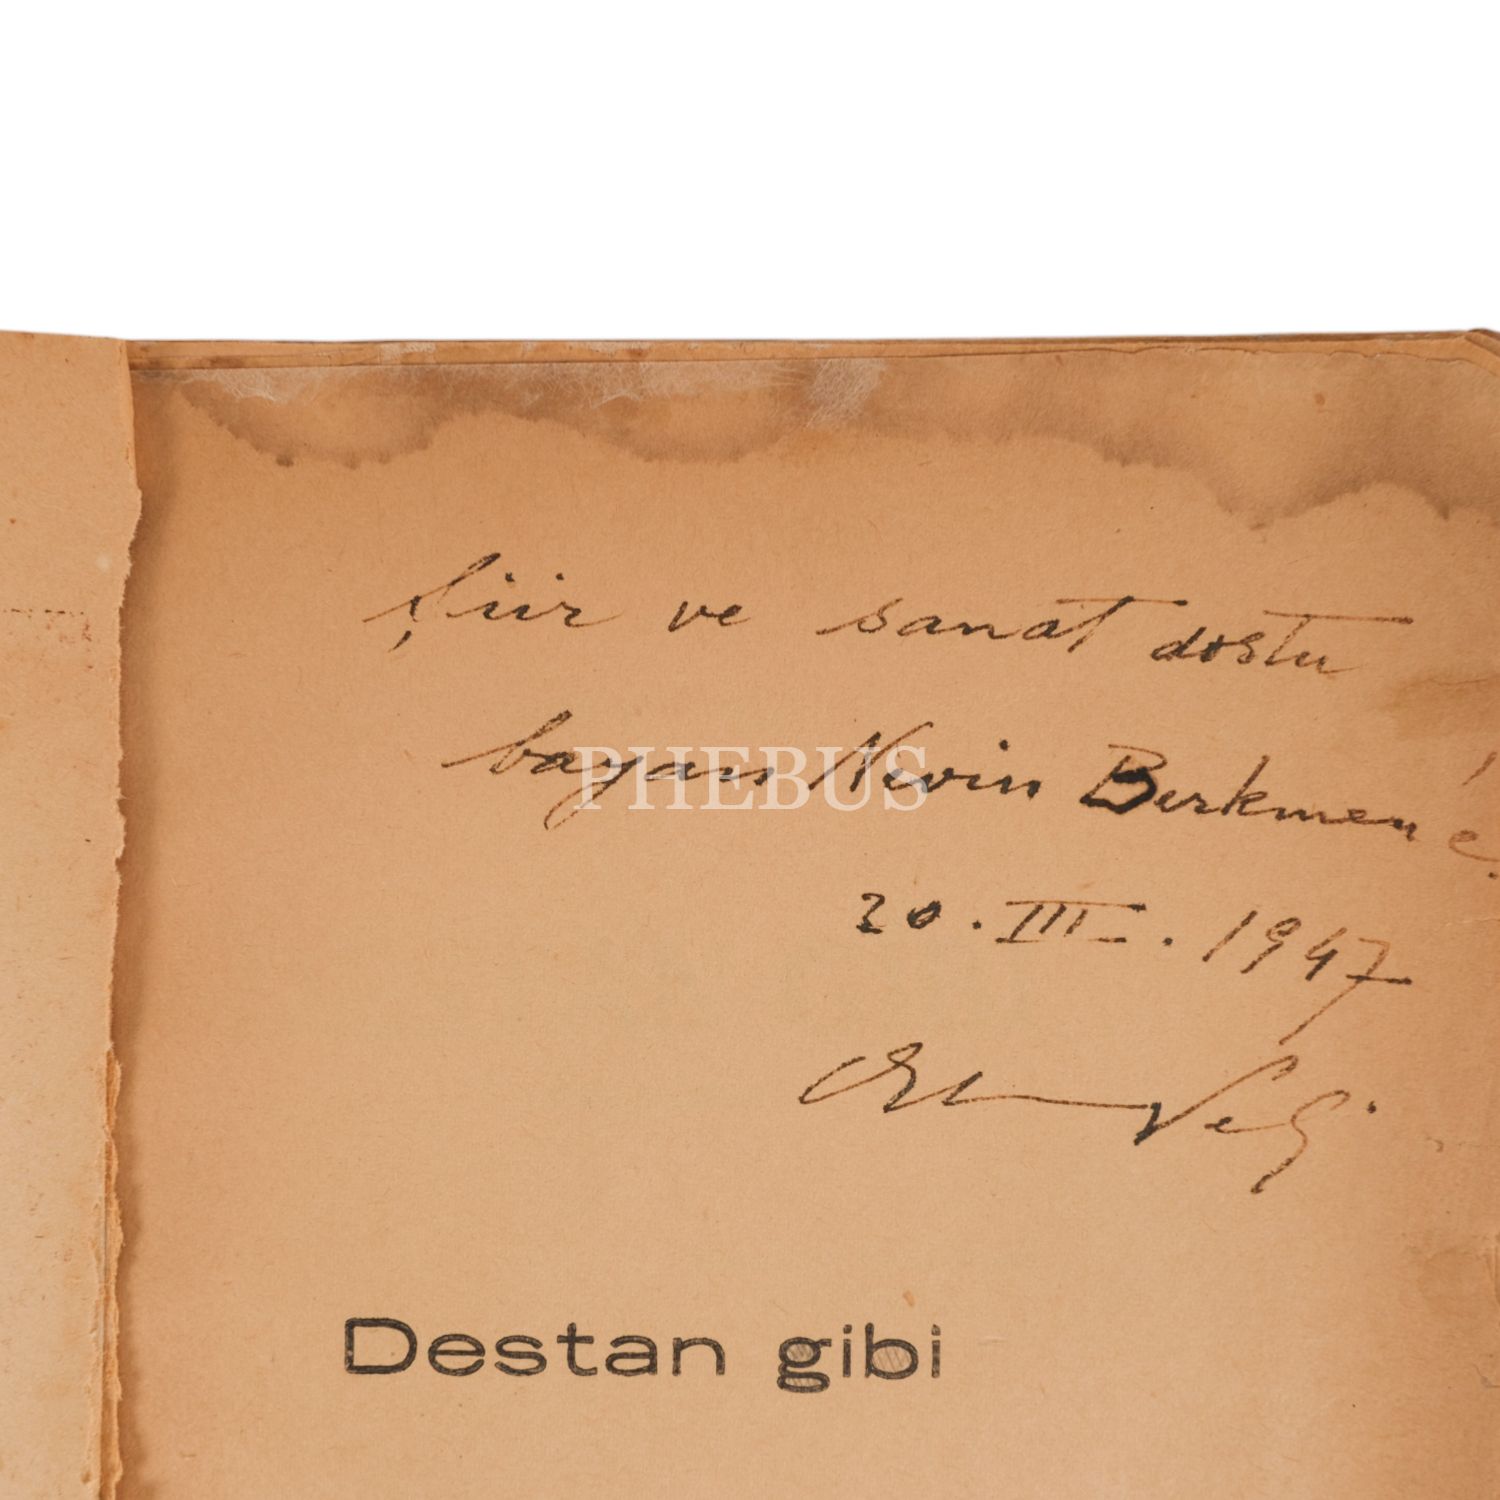 Şiir ve sanat dostu
bayan Nevin Berkmen'e.
PHEBUS
20.III.1947
Orhan Veli
Destan gibi